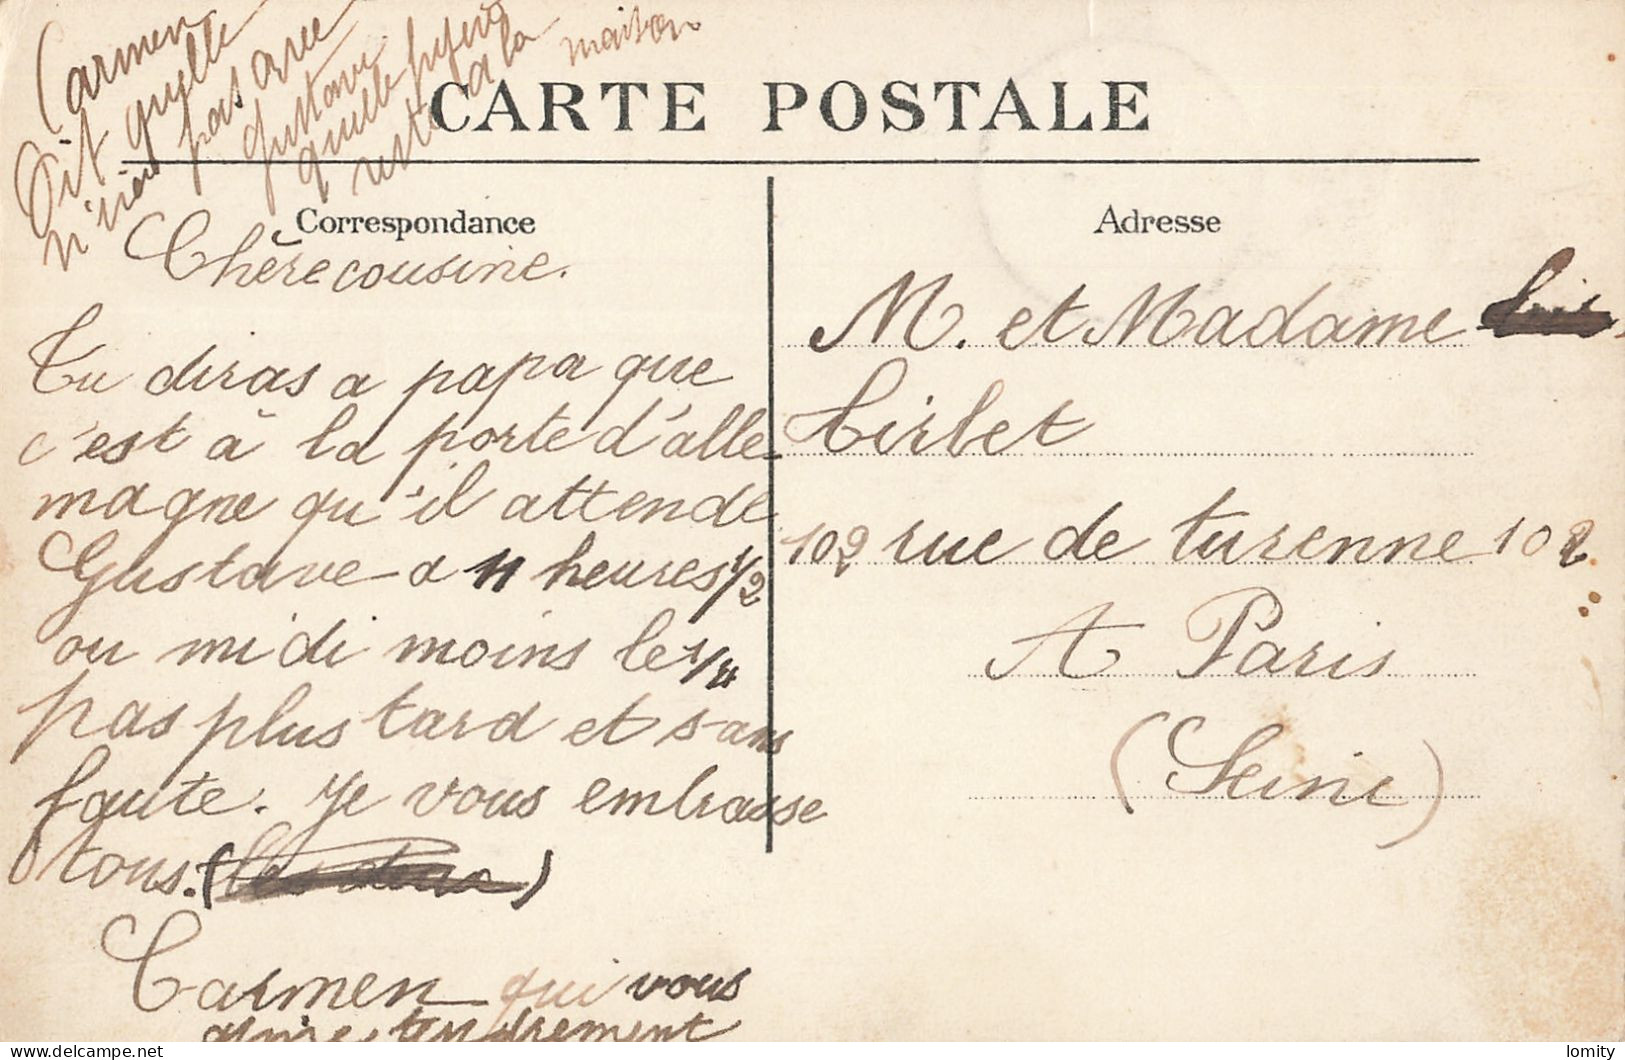 Carmen
Dit qu'elle
n'ira pas avec
Gustave
qu'elle
reste à la maison
CARTE POSTALE
Correspondance
Chère cousine.
Tu diras a papa que
c'est à la porte d'alle
magne qu'il attende
Gustave a 11 heures 1/2
ou midi moins le 1/4
pas plus tard et sans
faute. Je vous embrasse
tous.
Carmen qui vous
aime tendrement
Adresse
M. et Madame
Tirlet
102 rue de turenne 102
A Paris
(Seine)
lomity